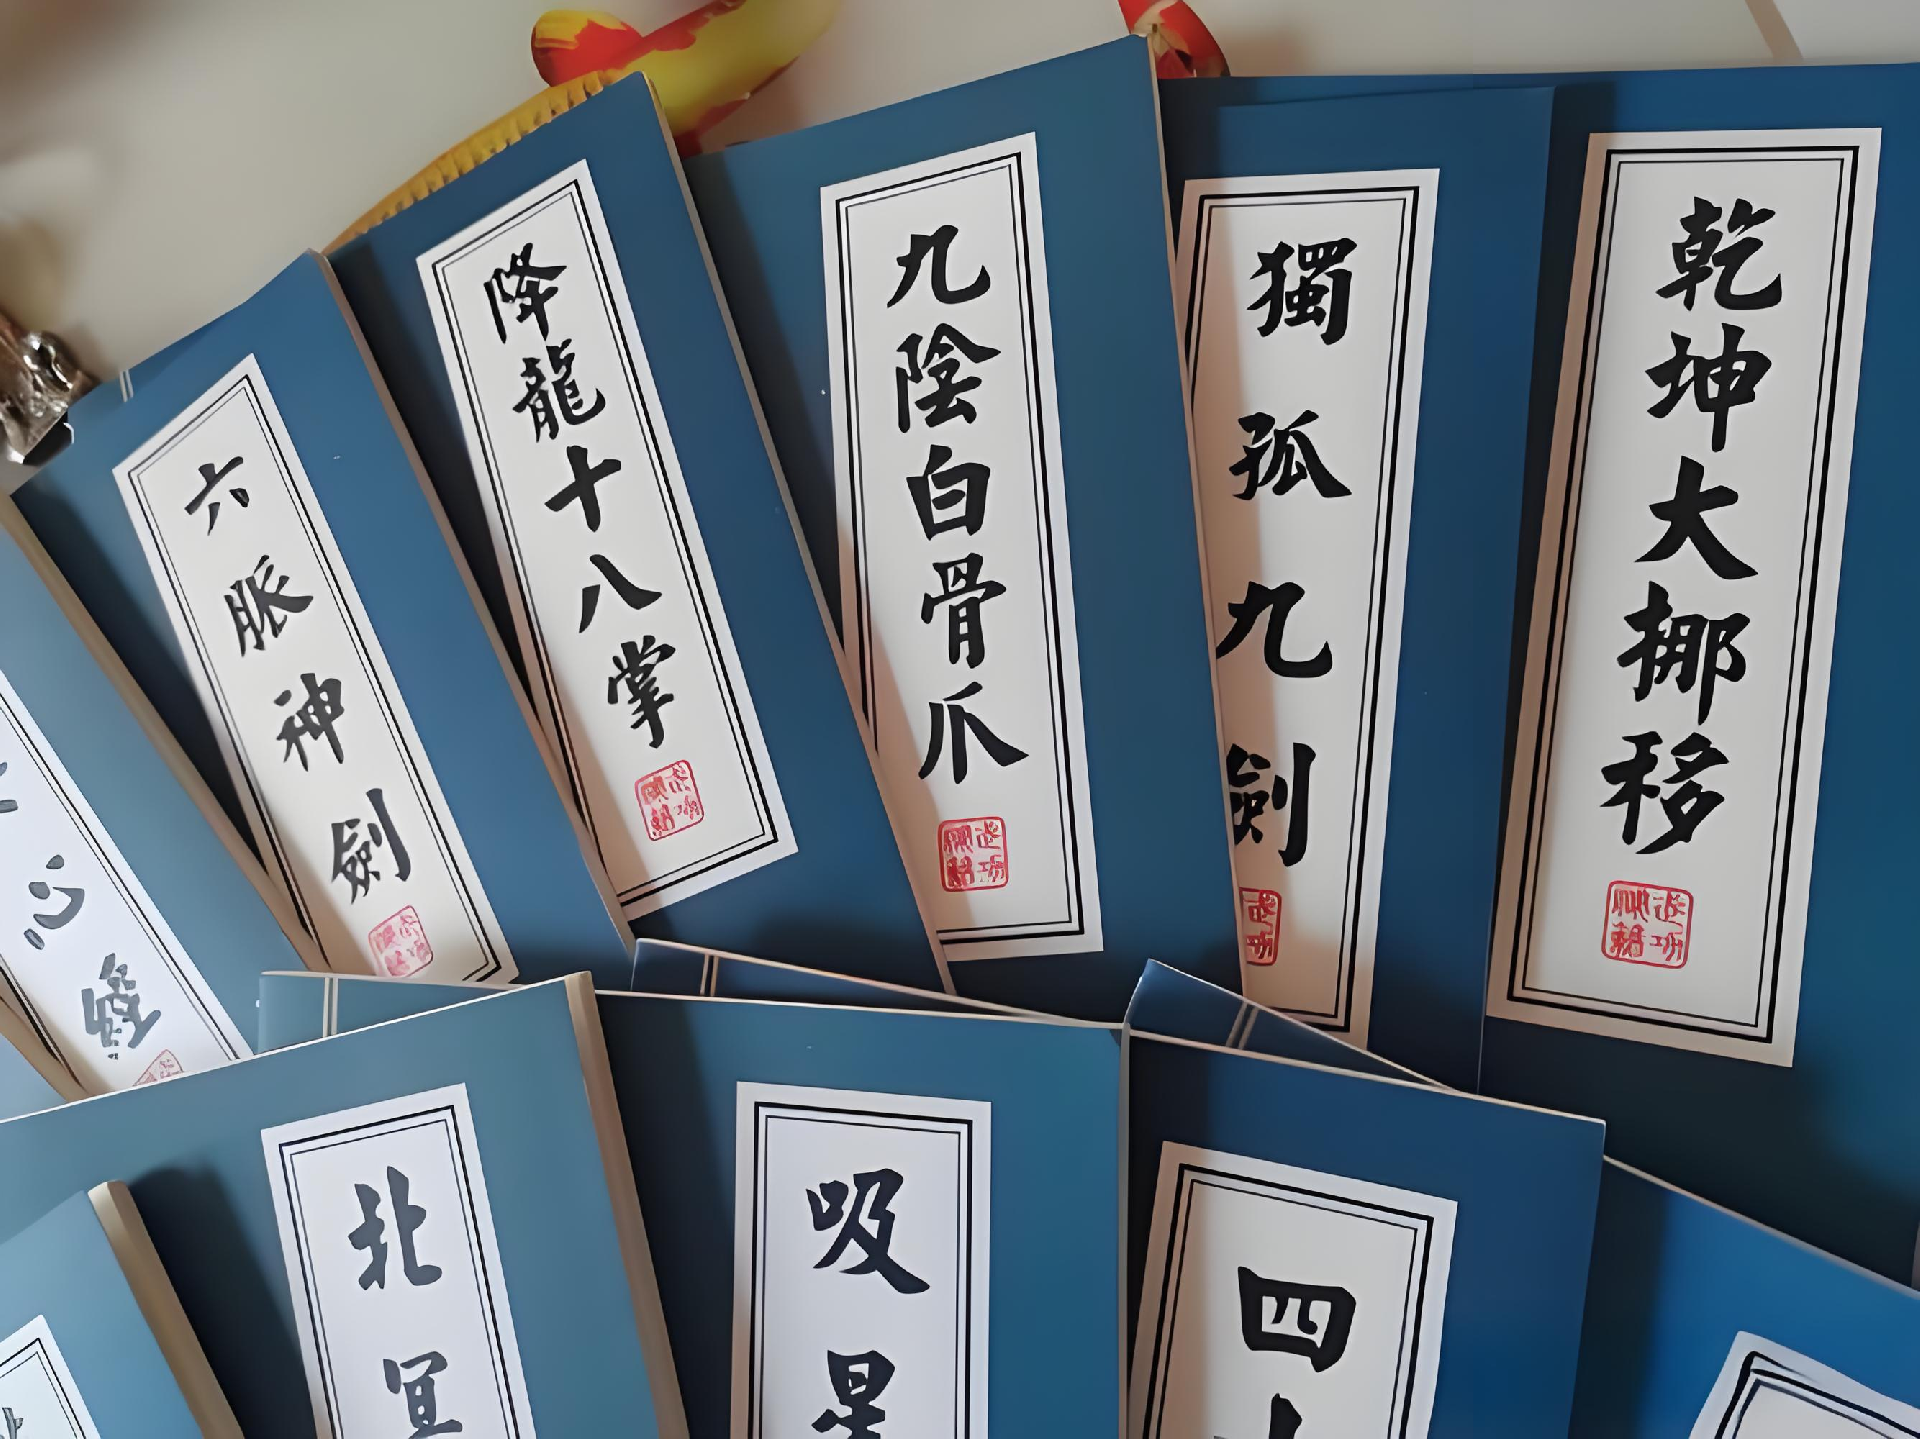 乾坤大挪移
獨孤九劍
九陰白骨爪
降龍十八掌
六脈神劍
心經
四
吸星
北冥